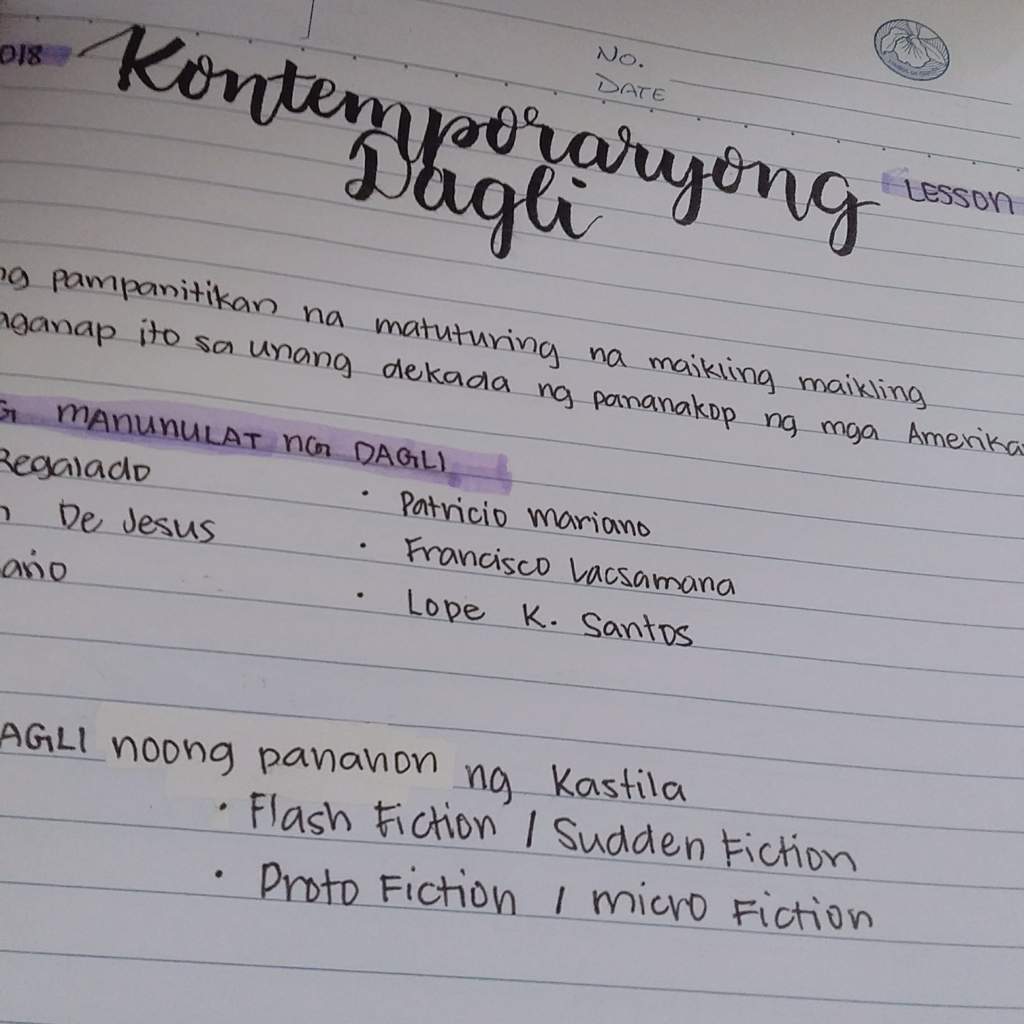 NO.
DATE
018
Kontemporaryong
LESSON
Dagli
ng pampanitikan na matuturing na maikling maikling
aganap ito sa unang dekada ng pananakop ng mga Amerika
G MANUNULAT NG DAGLI
Regalado
• Patricio Mariano
n De Jesus
• Francisco Lacsamana
ano
• Lope K. Santos
AGLI noong panahon ng Kastila
• Flash Fiction / Sudden Fiction
• Proto Fiction / micro Fiction